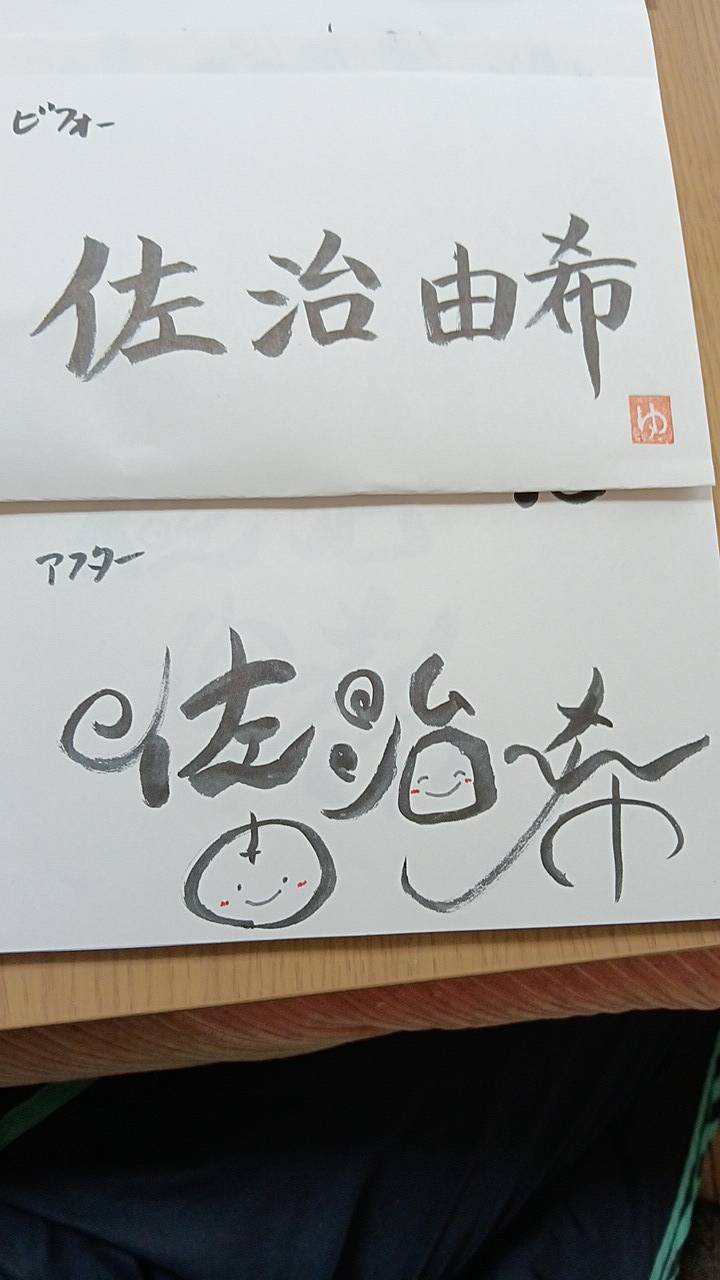 ビフォー
佐治由希
ゆ
アフター
佐治由希